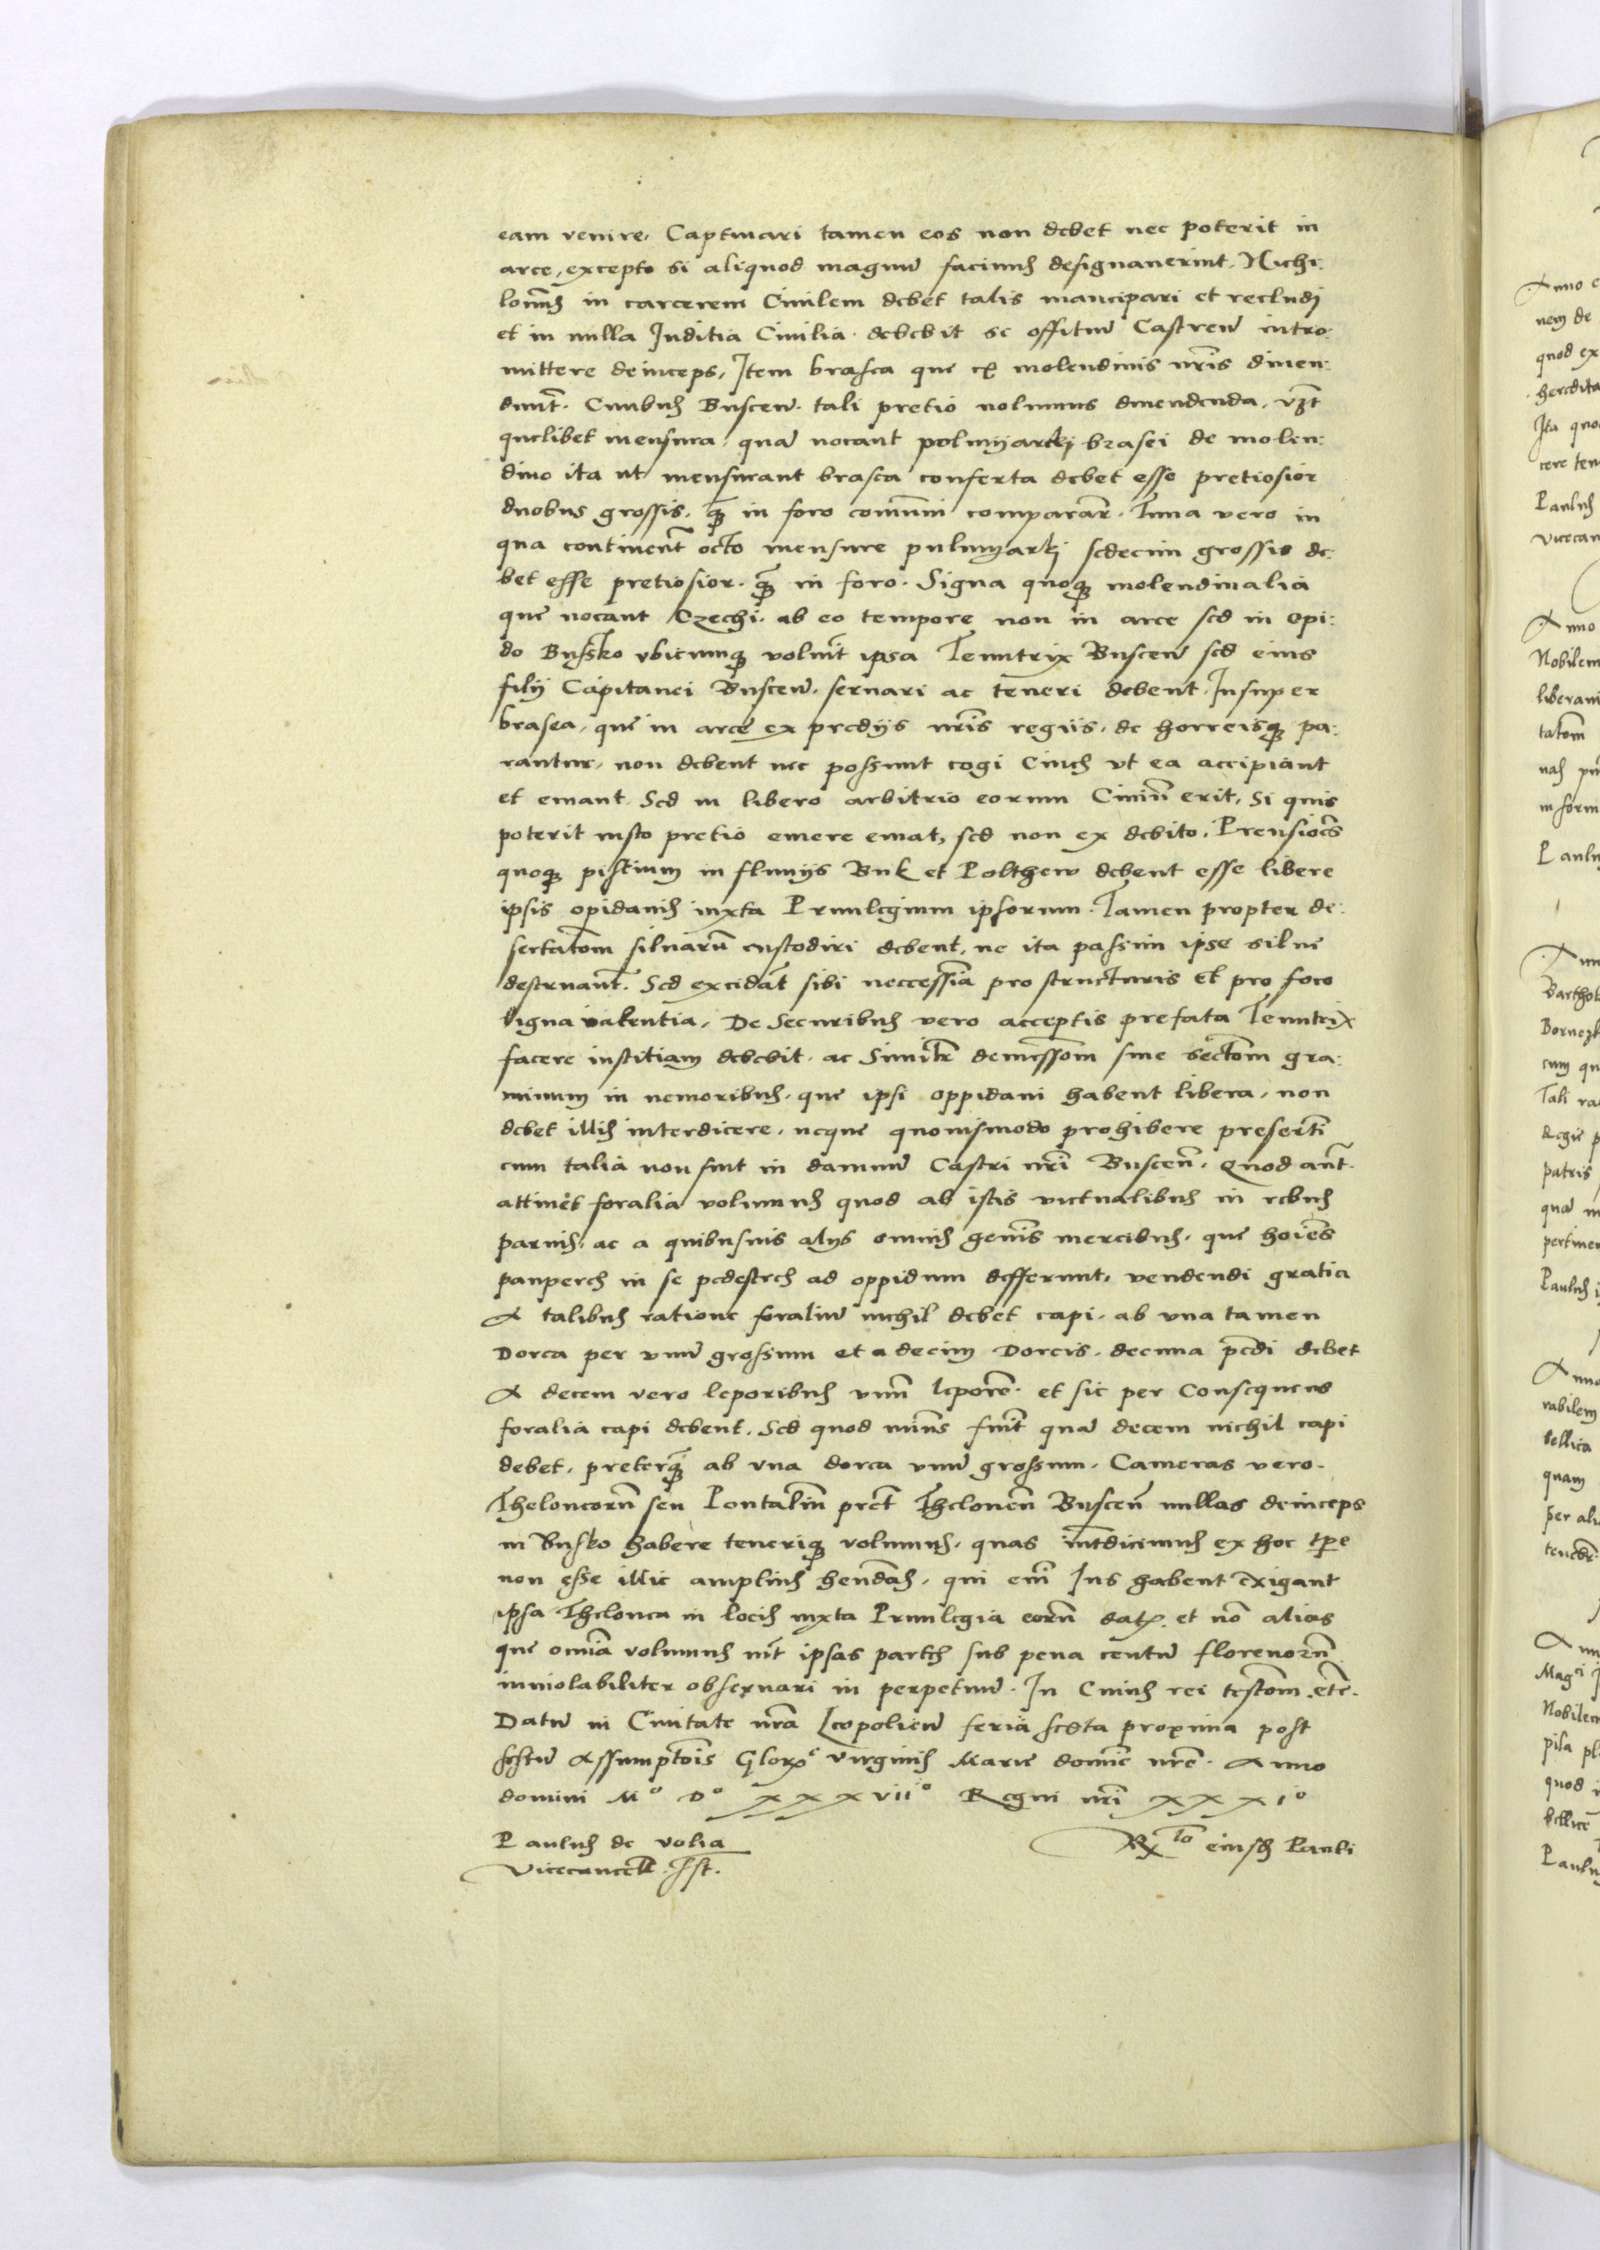 eam venire, Captiuari tamen eos non debet nec poterit in
arce, excepto si aliquod magnū facinus designauerint. Nichi:
lominus in carcerem Ciuilem debet talis mancipari et recludi
et in nulla Juditia Ciuilia debebit se offitiū Castren̄ intro:
mittere deinceps, Item brasea que ex molendinis nr̄is diuen:
dunt̄. Ciuibus Buscen̄. tali pretio volumus diuendenda, vꝫt
quelibet mensura, quā vocant polmyarki brasei de molen:
dino ita ut mensurant brasea conferta debet esse pretiosior
duobus grossis, qꝫ in foro com̄uni comparar̄. Tuna vero in
qua continent̄ octo mensure pulmyarki sedecim grossis de:
bet esse pretiosior. qꝫ in foro. Signa quoqꝫ molendinalia
que vocant Czechi. ab eo tempore non in arce sed in opi:
do Busko vbicunqꝫ voluer̄it ipsa Tenutrix Buscen̄ sed eius
filij Capitanei Buscen̄. seruari ac teneri debent. Insuper
brasea, que in arce ex predijs nr̄is regiis, de horreisqꝫ pa:
rantur, non debent nec possunt cogi Ciues vt ea accipiant
et emant. Sed in libero arbitrio eorum Ciuiū erit, Si quis
poterit iusto pretio emere emat, sed non ex debito, Prensiōes
quoqꝫ pistium in fluuijs Buk et Polthew debent esse libere
ipsis opidanis iuxta Priuilegium ipsorum. Tamen propter de:
sertatōm siluarū custodiri debent, ne ita passim ipse silue
destruant̄. Sed excidāt sibi neccessr̄ia pro structuris et pro foco
ligna iacentia, De Securibus vero acceptis prefata Tenutrix
facere iustitiam debebit. ac Similr̄ demessiōm siue sectōm gra:
minum in nemoribus, que ipsi oppidani habent libera, non
debet illis interdicere, neque quouismodo prohibere presert̄i
cum talia non sint in damnū Castri nr̄i Buscen̄. Quod aut̄.
attinet foralia volumus quod ab istis victualibus in rebus
paruis, ac a quibusuis alijs omnis gen̄is mercibus, que hoīes
pauperes in se pedestres ad oppidum defferunt, vendendi gratia
A talibus ratione foraliū nichil debet capi, ab vna tamen
Dorca per vnū grossum et a decim Dorcis, decima p̄cdi debet
A decem vero leporibus vnū leporē. et sic per Consequens
foralia capi debent, Sed quod min̄s fuer̄it quā decem nichil capi
debet, preterqꝫ ab vna dorca vnū grossum. Cameras vero.
Theloneorū seu Pontaliū pret̄ Thelonēū Buscen̄ nullas deinceps
in Busko habere teneriqꝫ volumus, quas int̄dicimus ex hoc tp̄e
non esse illic amplius hen̄das, qui eīm Jus habent exigant
ipsa Thelonea in locis iuxta Priuilegia eorū datꝫ. et nō alias
que omīa volumus int̄ ipsas partes sub pena centū florenorū
inuiolabiliter obseruari in perpetuū. In Cuius rei testīom. etc̄.
Datū in Ciuitate nr̄a Leopolien̄ feria sexta proxima post
festū Assumptōis Glorꝫe virginis Marie domīe nr̄e. Anno
domini Mo Do xxxviio Regni nr̄i xxxio
Paulus de volia
Vicecancell. sst.
Rxto eiusdē Pauli